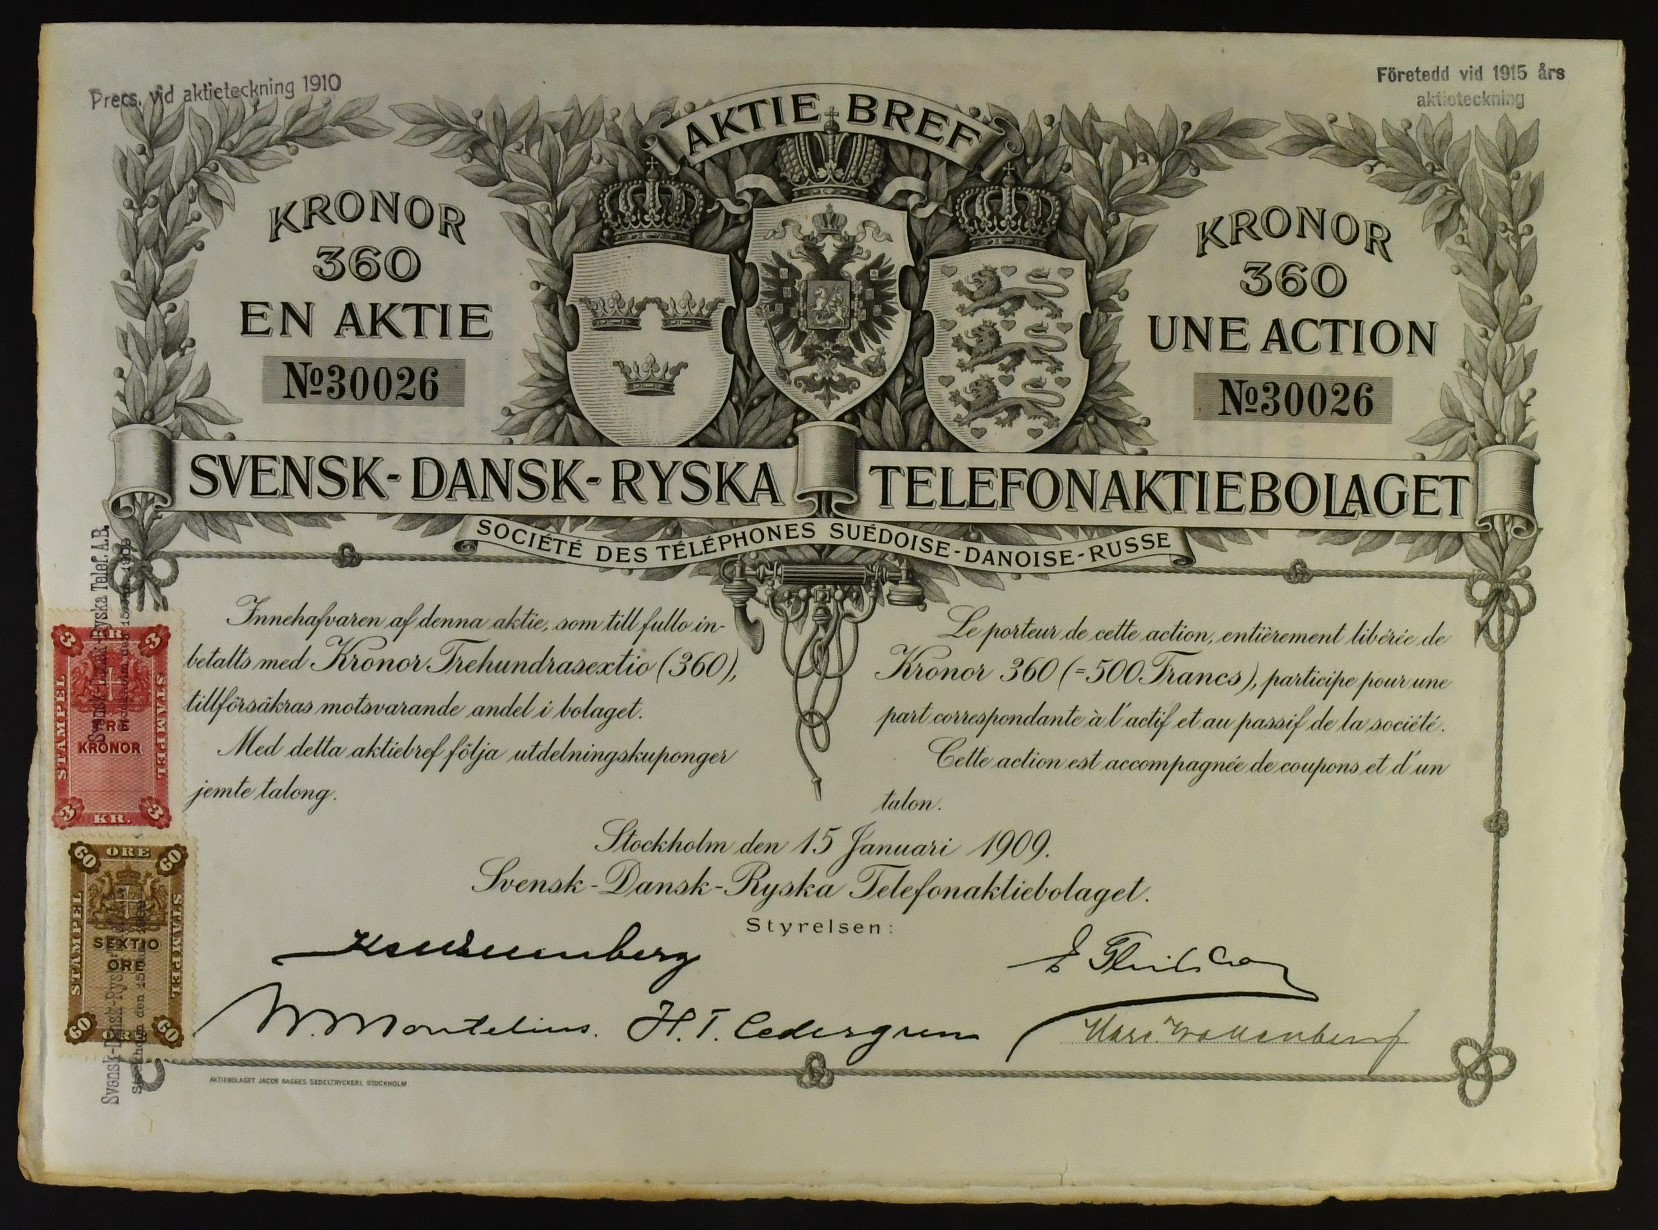 Pres. vid aktieteckning 1910
Företedd vid 1915 års
aktieteckning
AKTIE BREF
KRONOR
360
EN AKTIE
No 30026
KRONOR
360
UNE ACTION
No 30026
SVENSK-DANSK-RYSKA TELEFONAKTIEBOLAGET
SOCIÉTÉ DES TÉLÉPHONES SUÉDOISE-DANOISE-RUSSE
Innehafvaren af denna aktie, som till fullo in-
betalts med Kronor Trehundrasextio (360),
tillförsäkras motsvarande andel i bolaget.
Med detta aktiebref följa utdelningskuponger
jemte talong.
Le porteur de cette action, entièrement libérée de
Kronor 360 (=500 Francs), participe pour une
part correspondante à l'actif et au passif de la société.
Cette action est accompagnée de coupons et d'un
talon.
Stockholm den 15 Januari 1909.
Svensk-Dansk-Ryska Telefonaktiebolaget.
Styrelsen:
W. Montelius. H. T. Cedergren
Marc. Wallenberg
AKTIEBOLAGET JACOB BAGGES SEDELTRYCKERI, STOCKHOLM
3 KR. 3
STÄMPEL
STÄMPEL
TRE
KRONOR
3 KR. 3
60 ÖRE 60
STÄMPEL
STÄMPEL
SEXTIO
ÖRE
60 ÖRE 60
Svensk-Dansk-Ryska Telef. A.B.
Stockholm den 15
Svensk-Dansk-Ryska
Stockholm den 15